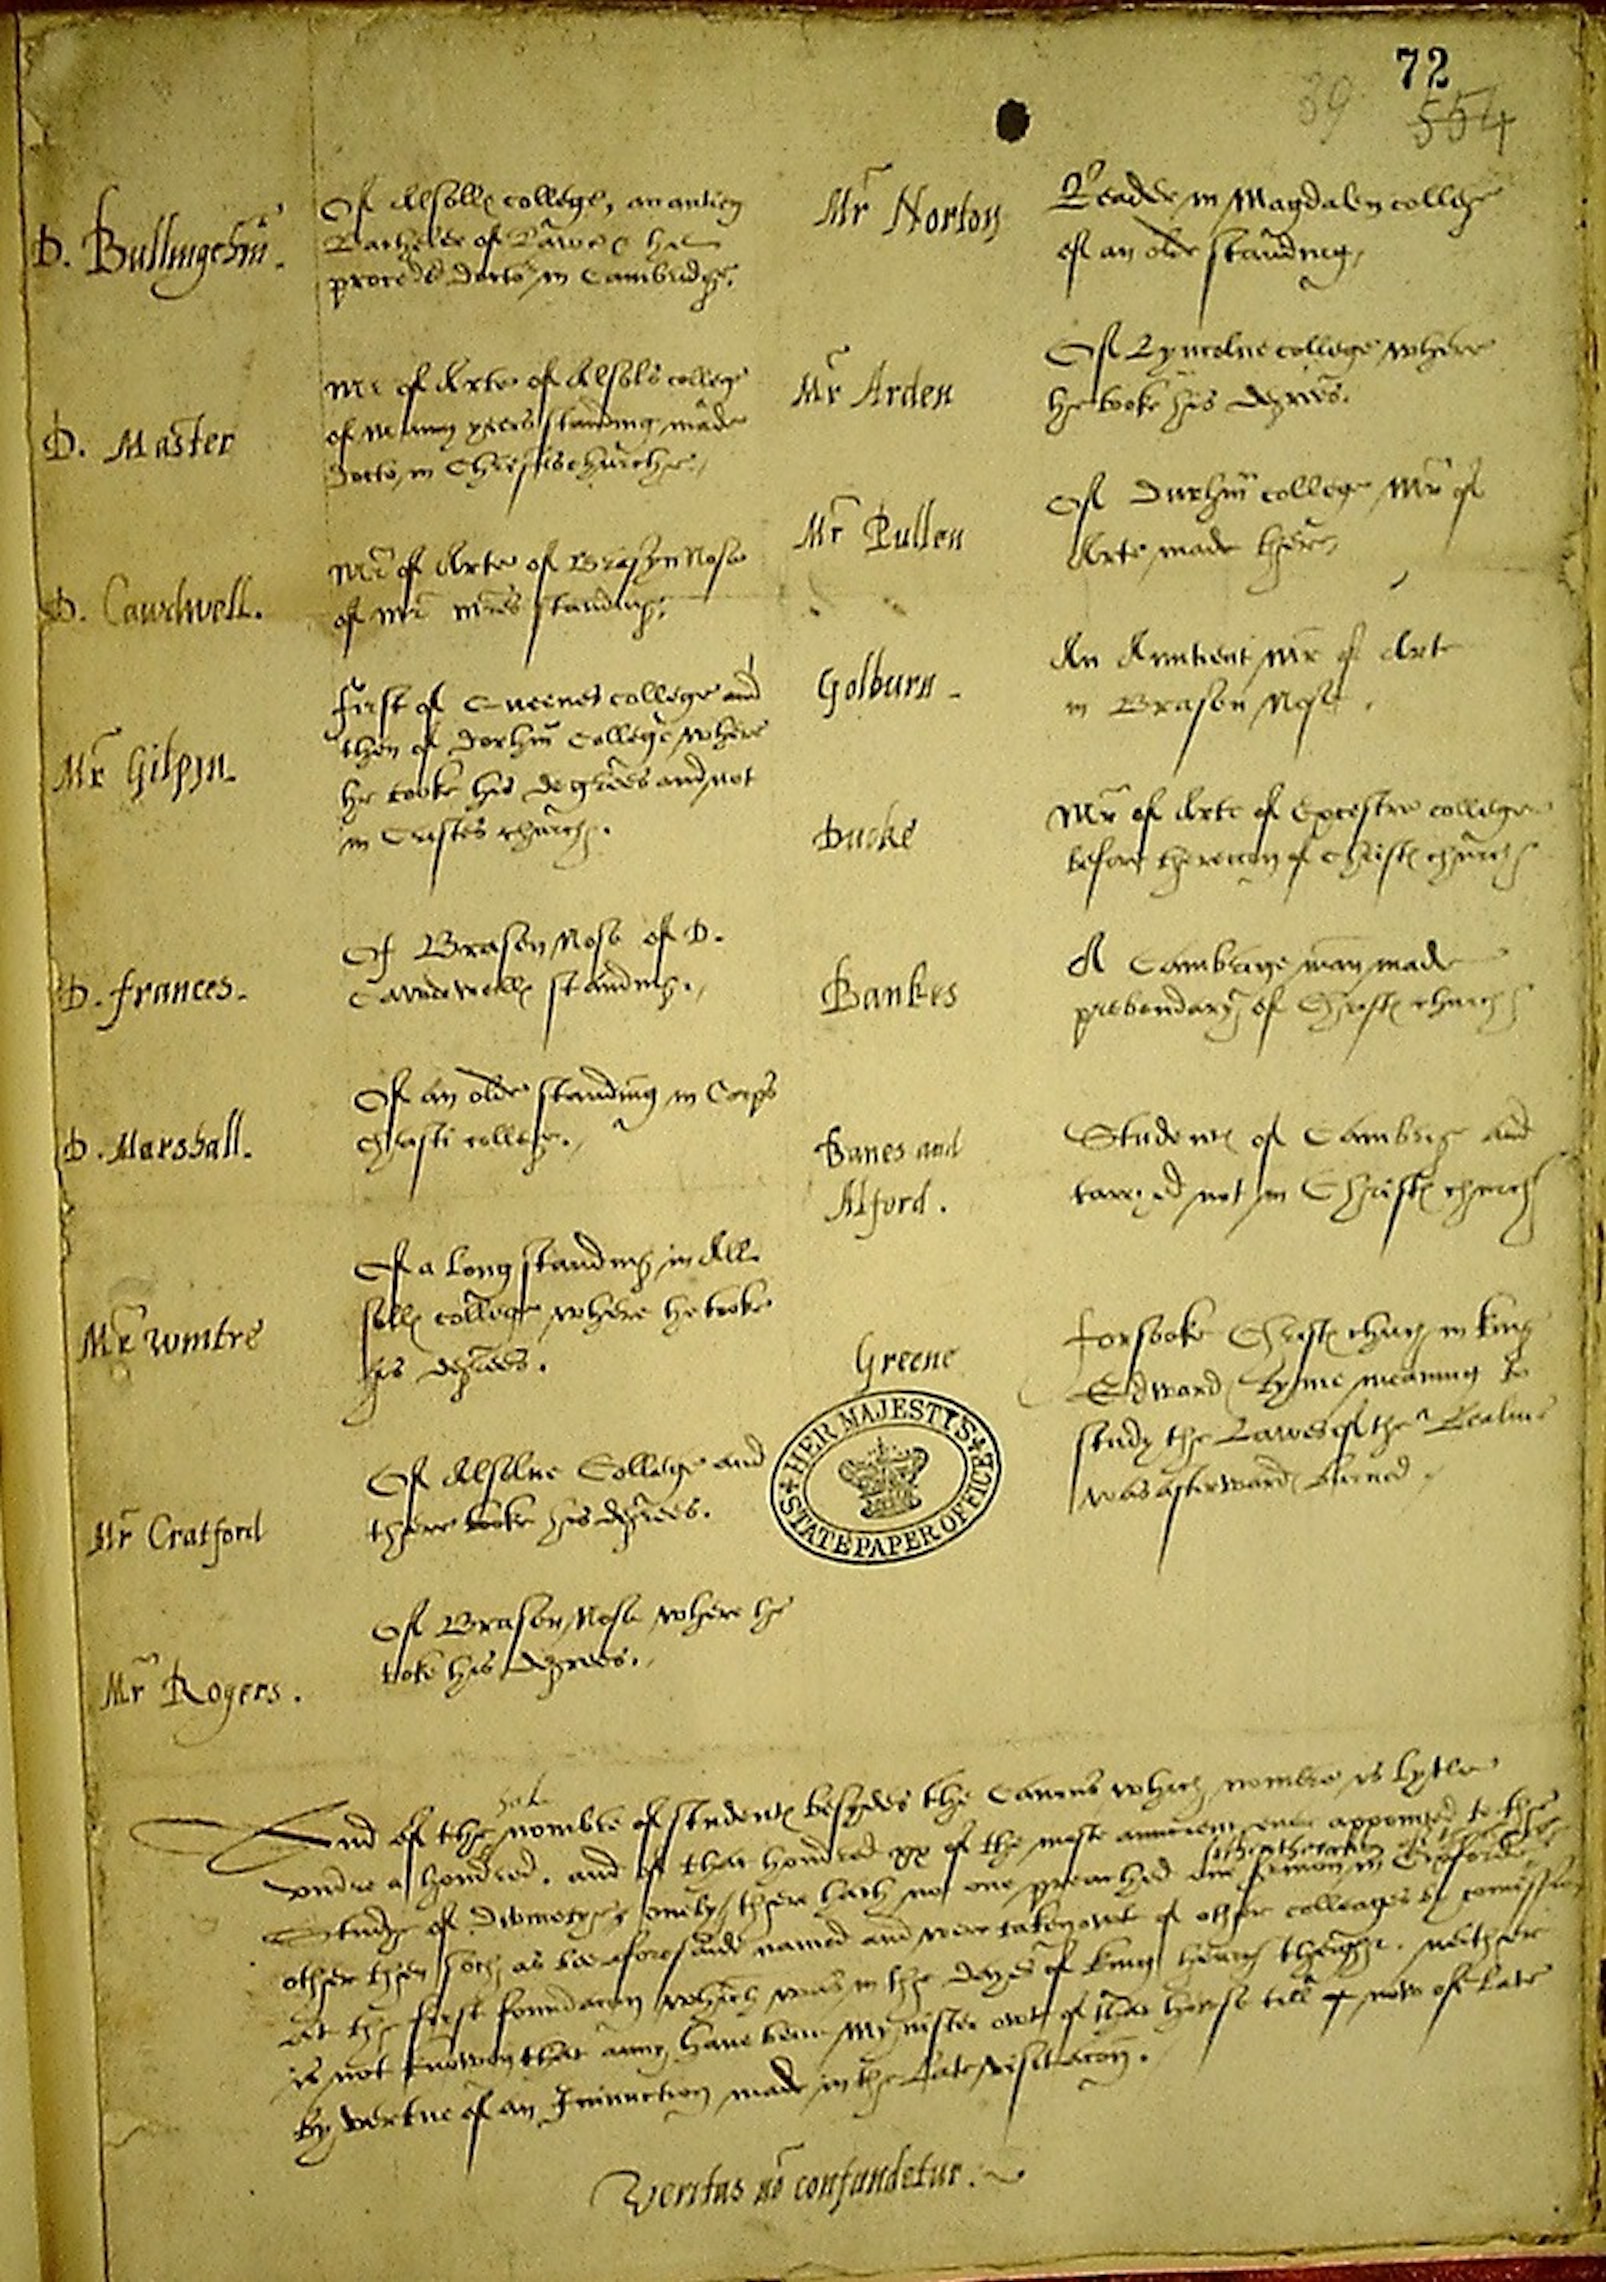 72
39 554
D. Bullingehm̄.
Of Alsolle college, an antien
Bacheler of Lawe & he
proceded Doctor in Cambridge.
D. Master
Mr of Arte of Alsols college
of many yeers standing made
Doctor in Christischurche.
D. Cawdwell.
Mr of Arte of Brasyn Nose
of standing.
Mr Gilpyn.
First of Queenes college and
then of Dorhm̄ College where
he tooke his degrees and not
in Cristes church.
D. Frances.
Of Brasen Nose of D.
Cawdewelle standing.
D. Marshall.
Of an olde standing in Corps
Christi college.
Mr Wintre
Of a long standing in All
solle college where he tooke
his degrees.
Mr Cratford
Of Alsolne College and
there tooke his degrees.
Mr Rogers.
Of Brasen Nose where he
toke his degrees.
Mr Norton
Reader in Magdalen college
of an olde standing
Mr Arden
Of Lyncolne college where
he tooke his degrees.
Mr Pullen
Of Durhm̄ college Mr of
Arte made there
Golburn.
An Auntient Mr of Art
in Brasen Nose.
Ducke
Mr of Arte of Excestre college
before the erecon of Christe church
Bankes
A Cambrige man made
prebendary of Christe church
Banes and
Alford.
Studente of Cambrige and
taried not in Christe church
Greene
Forsooke Christe church in king
Edward tyme meaning to
study the Lawes of the Realme
was afterward burned.
HER MAJESTY'S
STATE PAPER OFFICE
And of the hole nombre of studente besydes the Canons which nombre is lytle
vndre a hondred. and of that hondred xx of the moste auncient euer appointed to the
Study of Divinitye onely, there hath not one preached one sermon in Oxford
other then soch as bee aforsaide named and were taken owt of other colleages by comission
At the first foundacon which was in the dayes of king henry theight. neither
is not knowen that anny haue bene Mynister owt of that howse till now of late
by vertue of an Iniunction made in the late visitacon.
Veritas nō confundetur.